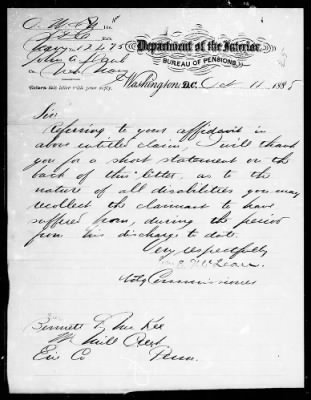 Navy 12475
Department of the Interior,
BUREAU OF PENSIONS,
Return this letter with your reply.
Washington, D.C., Oct 14 1885
Sir
Referring to your affidavit in
above entitled claim, I will thank
you for a short statement on the
back of this letter, as to the
nature of all disabilities you may
recollect the claimant to have
suffered from, during the period
from his discharge to date.
Very respectfully
Wm E McLean.
Actg Commissioner
Bennett
Mill
Erie Co Penn.